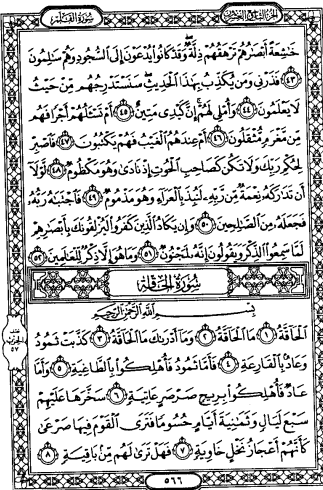 الجزء التاسع والعشرون سورة القلم
خَٰشِعَةً أَبْصَٰرُهُمْ تَرْهَقُهُمْ ذِلَّةٌ وَقَدْ كَانُوا۟ يُدْعَوْنَ إِلَى ٱلسُّجُودِ وَهُمْ سَٰلِمُونَ
﴿٤٣﴾ فَذَرْنِى وَمَن يُكَذِّبُ بِهَٰذَا ٱلْحَدِيثِ سَنَسْتَدْرِجُهُم مِّنْ حَيْثُ
لَا يَعْلَمُونَ ﴿٤٤﴾ وَأُمْلِى لَهُمْ إِنَّ كَيْدِى مَتِينٌ ﴿٤٥﴾ أَمْ تَسْـَٔلُهُمْ أَجْرًا فَهُم
مِّن مَّغْرَمٍ مُّثْقَلُونَ ﴿٤٦﴾ أَمْ عِندَهُمُ ٱلْغَيْبُ فَهُمْ يَكْتُبُونَ ﴿٤٧﴾ فَٱصْبِرْ
لِحُكْمِ رَبِّكَ وَلَا تَكُن كَصَاحِبِ ٱلْحُوتِ إِذْ نَادَىٰ وَهُوَ مَكْظُومٌ ﴿٤٨﴾ لَّوْلَآ
أَن تَدَٰرَكَهُۥ نِعْمَةٌ مِّن رَّبِّهِۦ لَنُبِذَ بِٱلْعَرَآءِ وَهُوَ مَذْمُومٌ ﴿٤٩﴾ فَٱجْتَبَٰهُ رَبُّهُۥ
فَجَعَلَهُۥ مِنَ ٱلصَّٰلِحِينَ ﴿٥٠﴾ وَإِن يَكَادُ ٱلَّذِينَ كَفَرُوا۟ لَيُزْلِقُونَكَ بِأَبْصَٰرِهِمْ
لَمَّا سَمِعُوا۟ ٱلذِّكْرَ وَيَقُولُونَ إِنَّهُۥ لَمَجْنُونٌ ﴿٥١﴾ وَمَا هُوَ إِلَّا ذِكْرٌ لِّلْعَٰلَمِينَ ﴿٥٢﴾
سُورَةُ الْحَاقَّةِ
بِسْمِ ٱللَّهِ ٱلرَّحْمَٰنِ ٱلرَّحِيمِ
ٱلْحَآقَّةُ ﴿١﴾ مَا ٱلْحَآقَّةُ ﴿٢﴾ وَمَآ أَدْرَىٰكَ مَا ٱلْحَآقَّةُ ﴿٣﴾ كَذَّبَتْ ثَمُودُ
وَعَادٌۢ بِٱلْقَارِعَةِ ﴿٤﴾ فَأَمَّا ثَمُودُ فَأُهْلِكُوا۟ بِٱلطَّاغِيَةِ ﴿٥﴾ وَأَمَّا
عَادٌ فَأُهْلِكُوا۟ بِرِيحٍ صَرْصَرٍ عَاتِيَةٍ ﴿٦﴾ سَخَّرَهَا عَلَيْهِمْ
سَبْعَ لَيَالٍ وَثَمَٰنِيَةَ أَيَّامٍ حُسُومًا فَتَرَى ٱلْقَوْمَ فِيهَا صَرْعَىٰ
كَأَنَّهُمْ أَعْجَازُ نَخْلٍ خَاوِيَةٍ ﴿٧﴾ فَهَلْ تَرَىٰ لَهُم مِّنۢ بَاقِيَةٍ ﴿٨﴾
٥٦٦